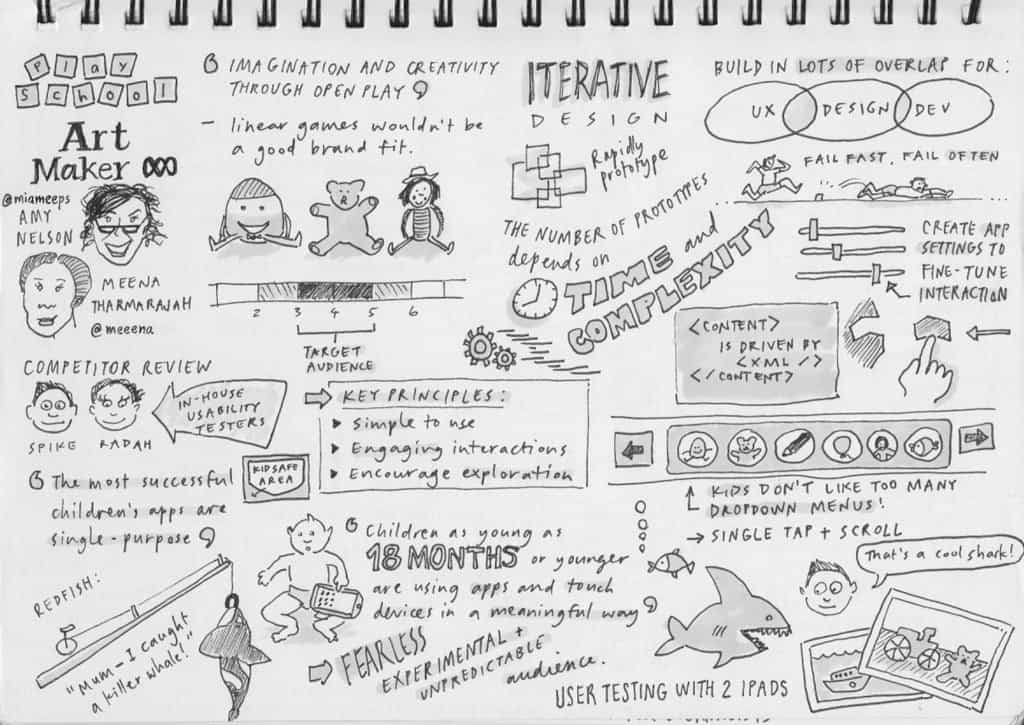 PLAY
SCHOOL
Art
Maker
@miameeps
AMY
NELSON
MEENA
THARMARAJAH
@meeena
IMAGINATION AND CREATIVITY
THROUGH OPEN PLAY
- linear games wouldn't be
a good brand fit.
2 3 4 5 6
TARGET
AUDIENCE
COMPETITOR REVIEW
SPIKE RADAH
IN-HOUSE
USABILITY
TESTERS
KEY PRINCIPLES:
Simple to use
Engaging interactions
Encourage exploration
KIDSAFE
AREA
The most successful
children's apps are
single-purpose
REDFISH:
"Mum-I caught
a killer whale!"
Children as young as
18 MONTHS or younger
are using apps and touch
devices in a meaningful way
FEARLESS
EXPERIMENTAL +
UNPREDICTABLE
audience.
ITERATIVE
DESIGN
Rapidly
prototype
THE NUMBER OF PROTOTYPES
depends on
TIME and
COMPLEXITY
BUILD IN LOTS OF OVERLAP FOR:
UX DESIGN DEV
FAIL FAST, FAIL OFTEN
CREATE APP
SETTINGS TO
FINE-TUNE
INTERACTION
<CONTENT>
IS DRIVEN BY
<XML/>
</CONTENT>
KIDS DON'T LIKE TOO MANY
DROPDOWN MENUS!
→ SINGLE TAP + SCROLL
That's a cool shark!
USER TESTING WITH 2 IPADS